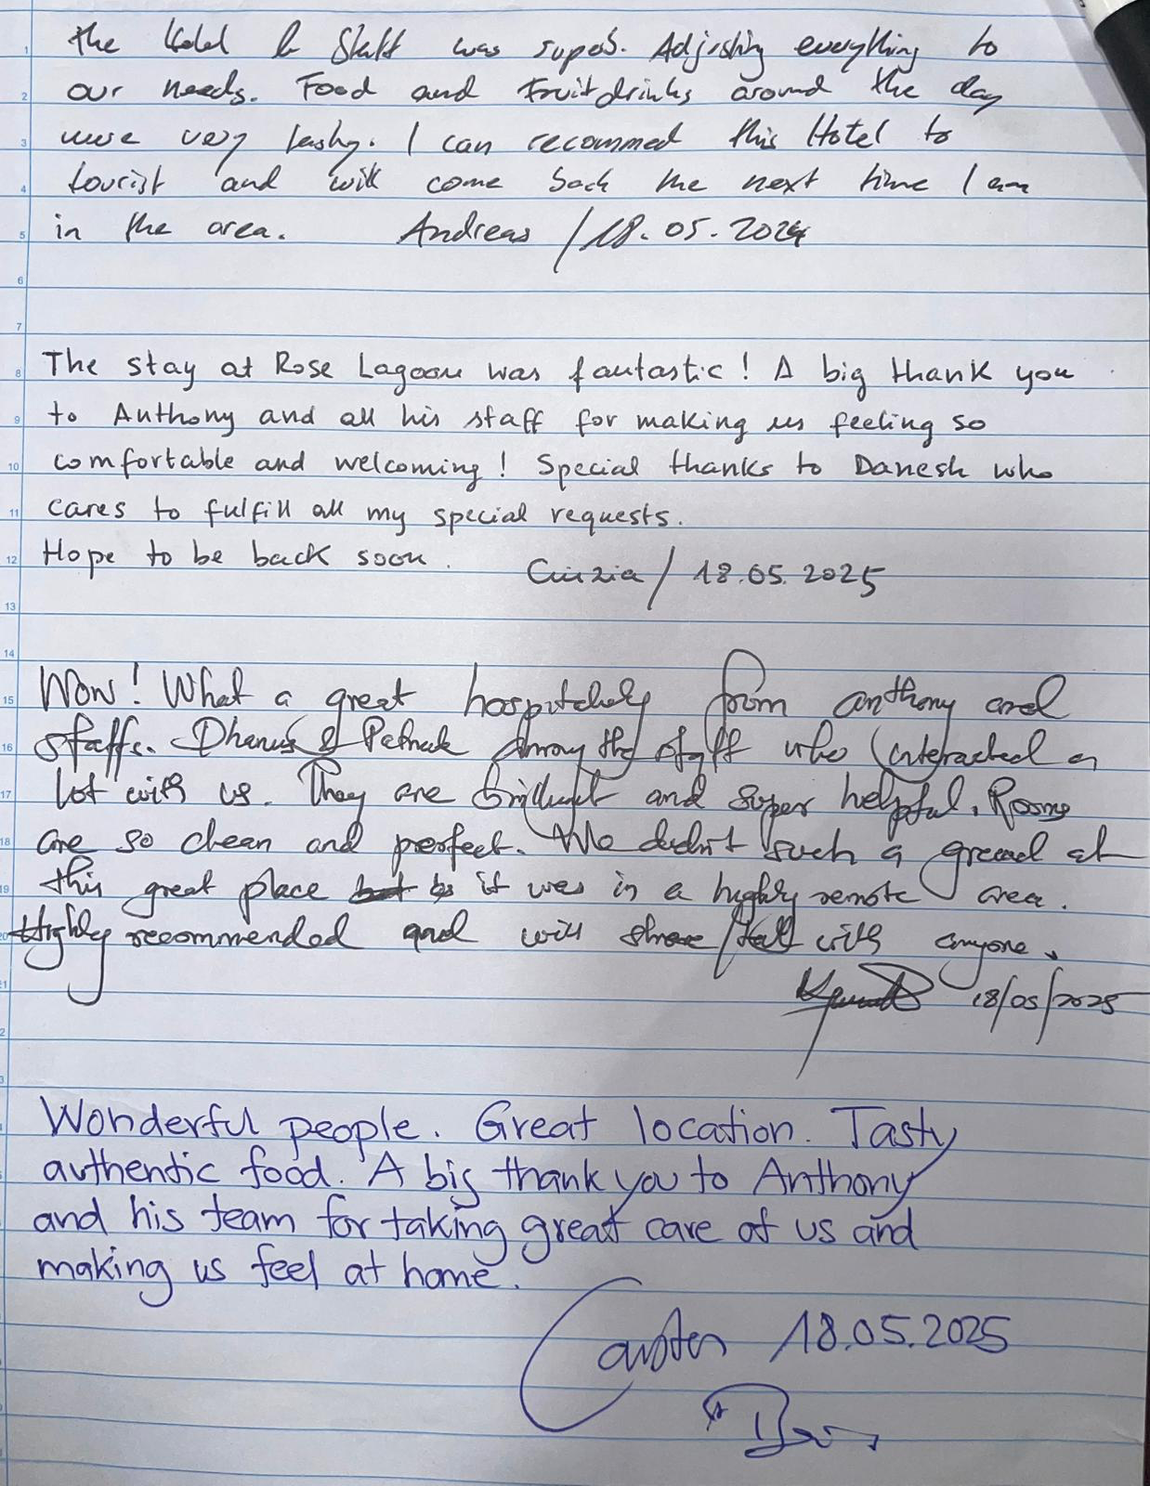 the Hotel & Staff was superb. Adjusting everything to
our needs. Food and Fruitdrinks around the day
were very tasty. I can recommed this Hotel to
tourist and will come back the next time I am
in the area. Andreas / 18.05.2024
The stay at Rose Lagoon was fantastic! A big thank you
to Anthony and all his staff for making us feeling so
comfortable and welcoming! Special thanks to Danesh who
cares to fulfill all my special requests.
Hope to be back soon. Cinzia / 18.05.2025
Wow! What a great hospitality from anthony and
staffs. & among the staff who interacted a
lot with us. They are brilliant and super helpful. Rooms
are so clean and perfect. We didn't such a at
this great place it was in a highly remote area.
Highly recommended and will share / tell with anyone.
18/05/2025
Wonderful people. Great location. Tasty
authentic food. A big thank you to Anthony
and his team for taking great care of us and
making us feel at home.
Carsten 18.05.2025